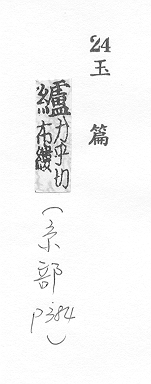 24
玉篇
纑力乎切布縷
(糸部 p384)